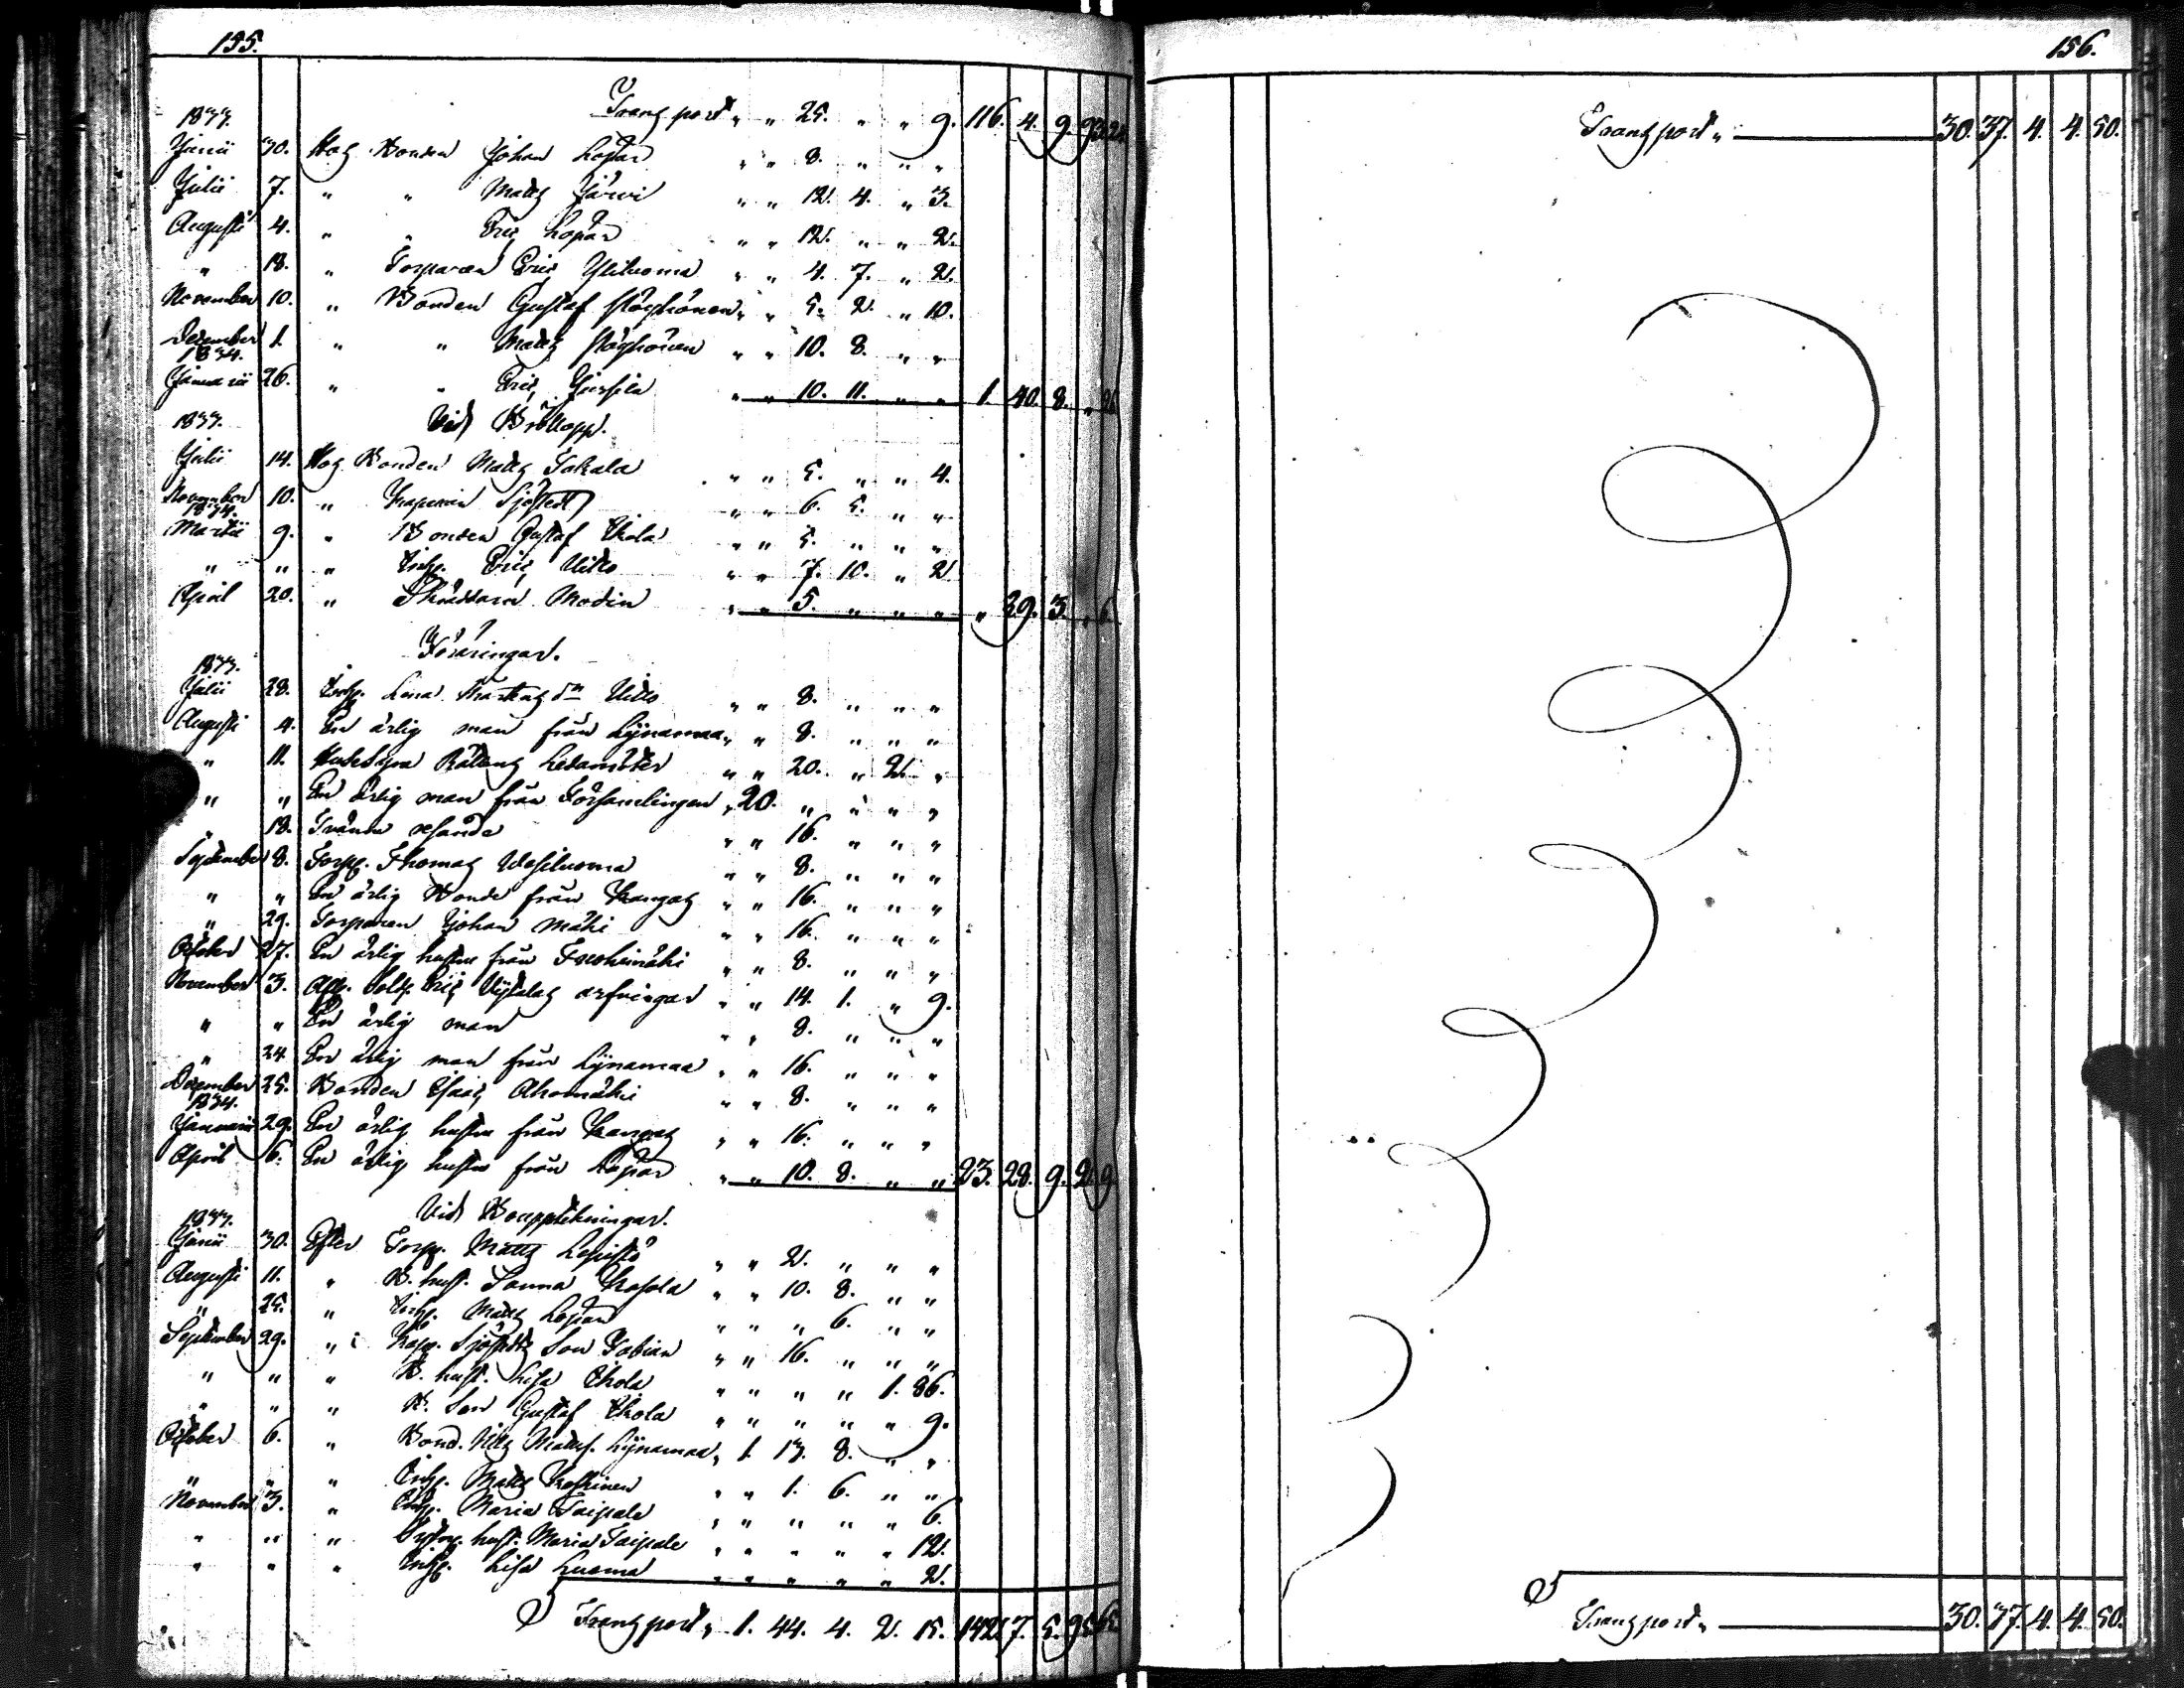 155.
Transport „ „ 25. „ „ 9. 116. 4. 9. 93.
1833.
Junii 30. Hos Bonden Johan Lopar „ „ 8. „ „ „
Julii 7. „ „ Matts Järvi „ „ 12. 4. „ 3.
Augusti 4. „ „ Eric Lopar „ „ 12. „ „ 2.
„ 18. „ Torparen Eric Ylituoma „ „ 4. 7. „ 2.
November 10. „ Bonden Gustaf „ „ 5. 2. „ 10.
December 1. „ „ Matts „ „ 10. 8. „ „
1834.
Januarii 26. „ „ Eric „ „ 10. 11. „ „ 1. 40. 8. „
1833. Vid Bröllopp.
Julii 14. Hos Bonden Matts Jakala „ „ 5. „ „ 4.
November 10. „ Kapp. Sjöstedt „ „ 6. 5. „ „
1834.
Martii 9. „ Bonden Gustaf Ekola „ „ 5. „ „ „
„ „ „ Inhs. Eric Uitto „ „ 7. 10. „ 2.
April 20. „ Skräddaren Modin „ „ 5. „ „ „ „ 39. 3. „ 6.
Föräringar.
1833.
Julii 28. Inhs. Lena dr Uitto „ „ 8. „ „ „
Augusti 4. En ärlig man från Lynamaa „ „ 8. „ „ „
„ 11. Rättens Ledamöter „ „ 20. „ 2. „
„ „ En ärlig man från Församlingen „ 20. „ „ „ „
18. Tvänne resande „ „ 16. „ „ „
September 8. Torp. Thomas „ „ 8. „ „ „
„ „ En ärlig Bonde från Kangas „ „ 16. „ „ „
„ 29. Torparen Johan Mäki „ „ 16. „ „ „
October 27. En ärlig hustru från „ „ 8. „ „ „
November 3. Eric arfvingar „ „ 14. 1. „ 9.
„ „ En ärlig man „ „ 8. „ „ „
„ 24. En ärlig man från Lynamaa „ „ 16. „ „ „
December 25. Bonden Isaac Ahomäki „ „ 8. „ „ „
1834.
Januarii 29. En ärlig hustru från Kangas „ „ 16. „ „ „
April 6. En ärlig hustru från Lopar „ „ 10. 8. „ „ 23. 28. 9. 2. 9.
Vid Bouppteckningar.
1833.
Junii 30. Efter Torp. Matts Lepistö „ „ 2. „ „ „
Augusti 11. „ B. hust. Sanna Kasola „ „ 10. 8. „ „
„ 25. „ Inhs. Matts Lopar „ „ „ 6. „ „
September 29. „ Kapp. Sjöstedts Son Fabian „ „ 16. „ „ „
„ „ „ B. hust. Lisa Ekola „ „ „ „ 1. 86.
„ „ „ B. Son Gustaf Ekola „ „ „ „ „ 9.
October 6. „ Bond. Nils Matts. Lynamaa „ 1. 13. 8. „ „
„ „ Inhs. Matts Koskinen „ „ 1. 6. „ „
November 3. „ Inhs. Maria Taipale „ „ „ „ „ 6.
„ „ „ hust. Maria Taipale „ „ „ „ „ 12.
„ „ „ Inhs. Lisa Luoma „ „ „ „ „ 2.
Transport „ 1. 44. 4. 2. 15. 142. 7. 5. 95.
156.
Transport „ 30. 37. 4. 4. 50.
Transport „ 30. 37. 4. 4. 50.